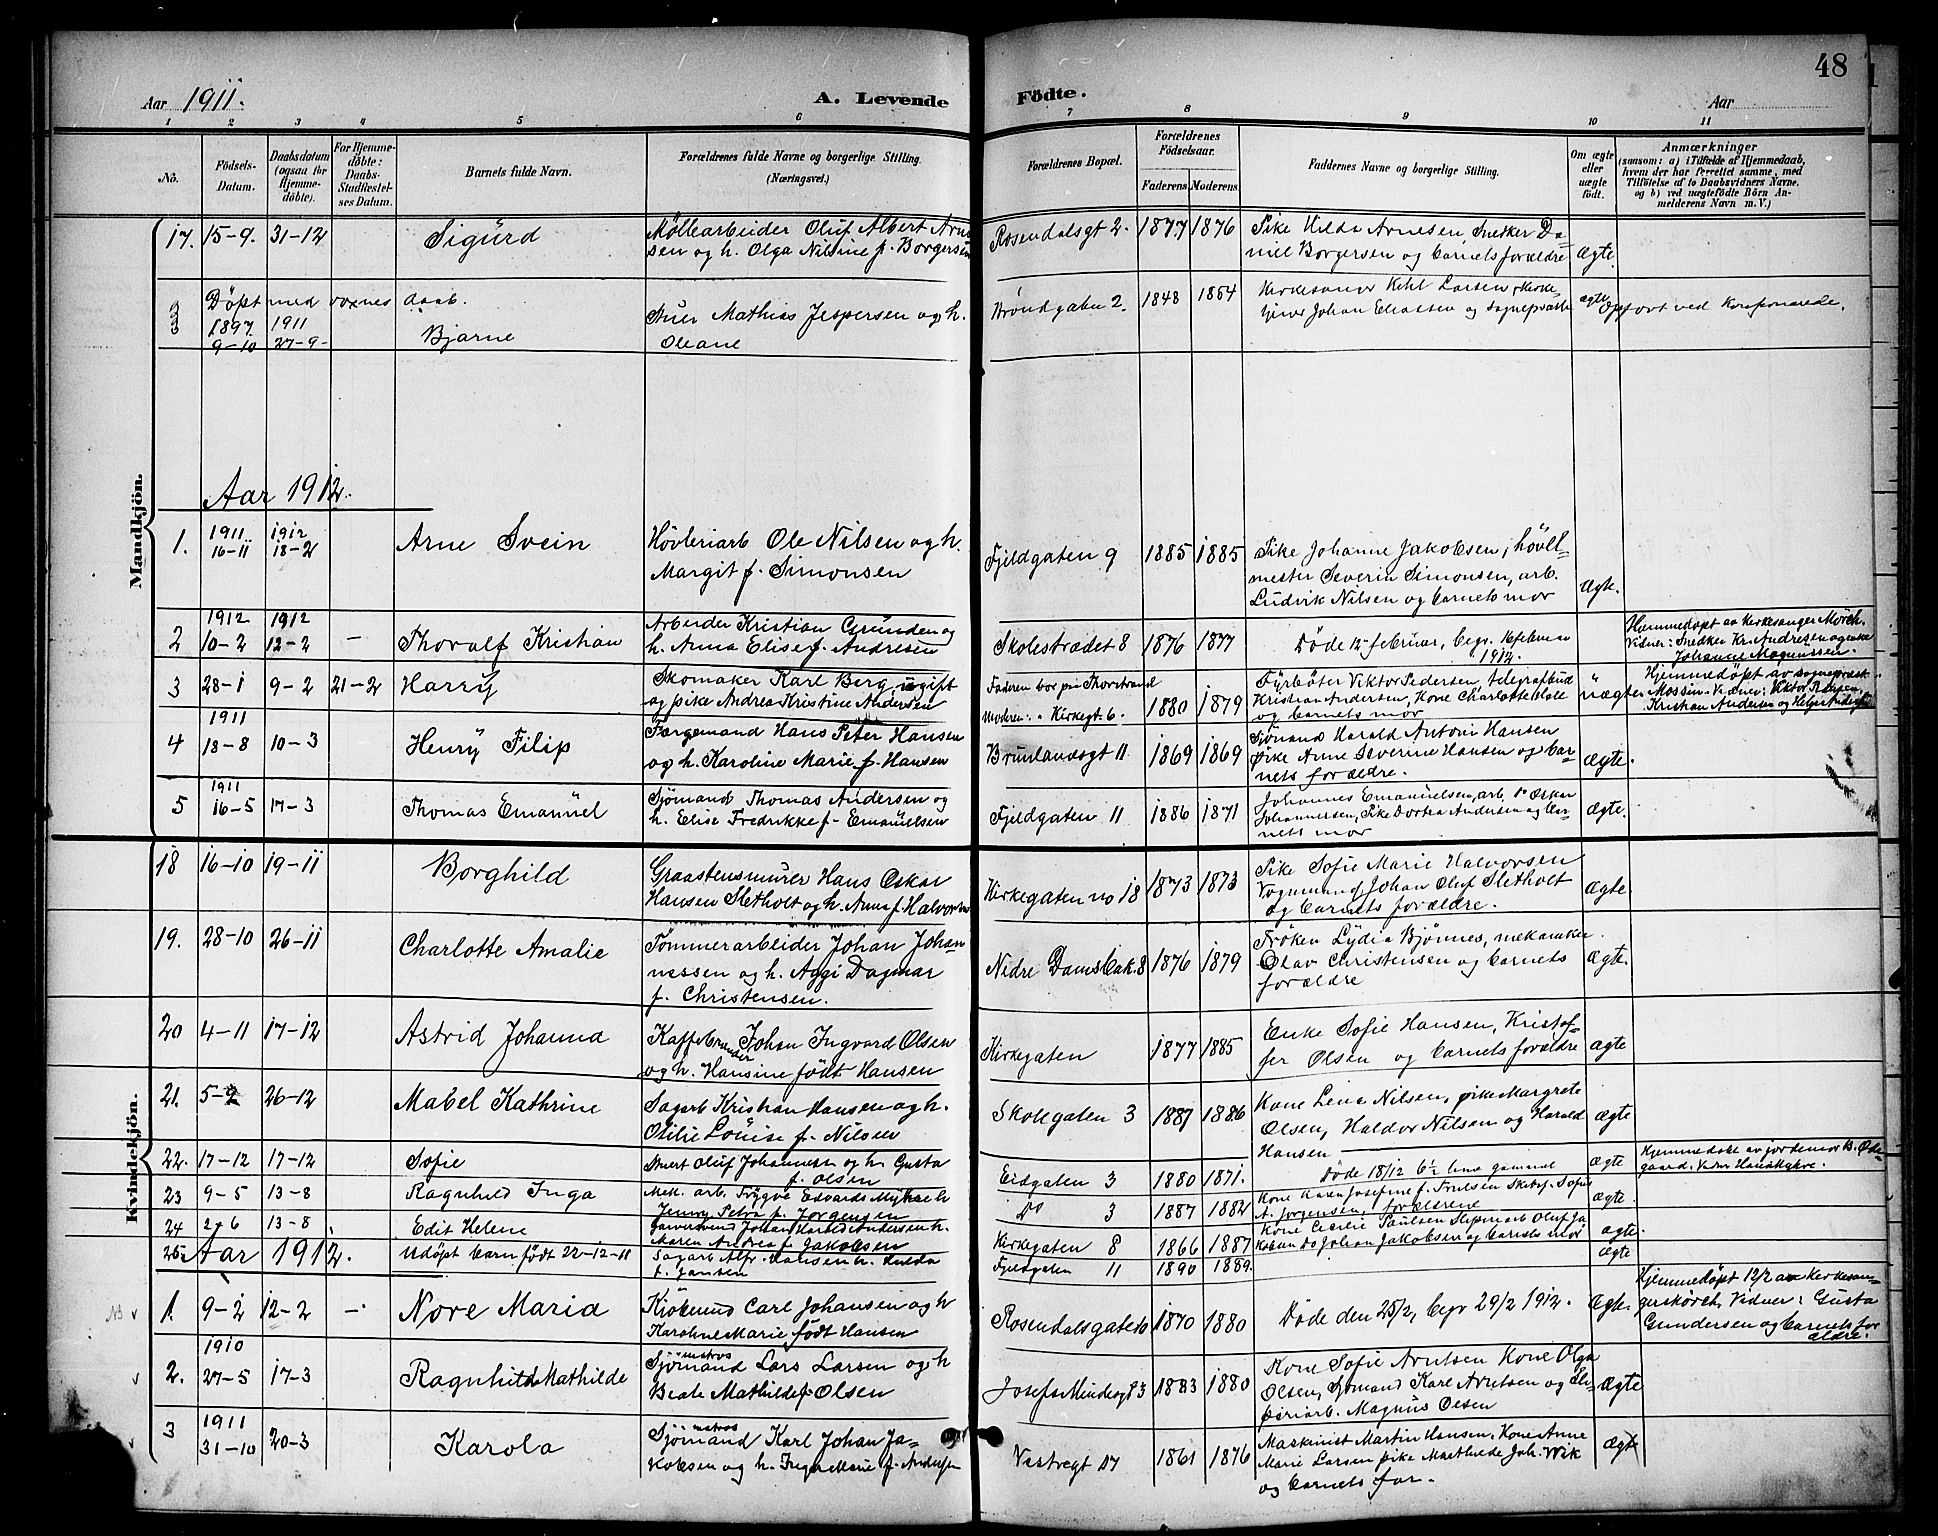 48
Aar 1911.
A. Levende Födte.
Aar
1 2 3 4 5 6 7 8 9 10 11
No.
Födsels-Datum.
Daabsdatum (ogsaa for Hjemme-döbte).
For Hjemme-döbte: Daabs-Stadfæstel-ses Datum.
Barnets fulde Navn.
Forældrenes fulde Navne og borgerlige Stilling.
(Næringsvei.)
Forældrenes Bopæl.
Forældrenes Födselsaar.
Faderens Moderens
Faddernes Navne og borgerlige Stilling.
Om ægte eller uægte født.
Anmærkninger
(saasom: a) i Tilfælde af Hjemmedaab,
hvem der har forrettet samme, med
Tilföielse af to Daabsvidners Navne.
og b) ved uægtefödte Börn An-
melderens Navn m. V.)
Mandkjön.
17. 15-9. 31-12 Sigurd
Møllearbeider Oluf Albert Arne
sen og h. Olga Nilsine f. Borgersen
Rosendalsgt 2. 1877 1876
Pike Hilda Arnesen, Snedker Da-
niel Borgersen og barnets forældre ægte.
Døpt med voxnes daab.
1897 9-10 1911 27-9- Bjarne
Mathias Jespersen og h.
Oleane
Brøndgaten 2. 1848 1854
Kirkesanger Larsen, Kirke-
tjener Johan og Sogneprest
ægte Opført ved Konfirmerede.
Aar 1912.
1. 1911 16-11 1912 18-2 Arne Svein
Høvleriarb Ole Nilsen og h.
Margit f. Simonsen
Fjeldgaten 9 1885 1885
Pike Johanne Jakobsen, høvl-
mester Severin Simonsen, arb.
Ludvik Nilsen og barnets mor ægte.
2 1912 10-2 1912 12-2 - Thoralf Kristian
Arbeider Kristian Grunden og
h. Anna Elise f. Andresen
Skolestrædet 8 1876 1877
Døde 12 februar, begr. 16 februar
1912.
Hjemmedøpt av kirkesanger Mørch.
Vidner: Snedker Kr. Andresen og enke
Johanne Magnussen.
3 28-1 9-2 21-2 Harry
Skomaker Karl Berg, ugift
og pike Andrea Kristine Andersen
Faderen bor paa Thorstrand
Moderen: " Kirkegt. 6. 1880 1879
Fyrbøter Viktor Pedersen, telegrafbud
Kristian Andersen, Kone Charlotte
og barnets mor
uægte
Hjemmedøpt av sogneprest
Kristian Andersen og Helga Andersen
4 1911 18-8 10-3 Henry Filip
Færgemand Hans Peter Hansen
og h. Karoline Marie f. Hansen
Brunlandsgt 11 1869 1869
Sjömand Harald Antoni Hansen
Pike Anne Severine Hansen og bar-
nets forældre. ægte.
5 1911 16-5 17-3 Thomas Emanuel
Sjömand Thomas Andersen og
h. Elise Fredrikke f. Emanuelsen
Fjeldgaten 11 1886 1871
Johannes Emanuelsen, arb. Do Oskar
Johannessen, Pike Dortea Andersen og bar-
nets mor ægte.
Kvindekjön.
18 16-10 19-11 Borghild
Graastensmurer Hans Oskar
Hansen Sletholt og h. Anna f. Halvorsen
Kirkegaten no 18 1873 1873
Pike Sofie Marie Halvorsen
Vognmand Johan Oluf Sletholt
og barnets forældre. ægte
19. 28-10 26-11 Charlotte Amalie
Tømmerarbeider Johan Johan-
nessen og h. Aggi Dagmar
f. Christensen.
Nedre Damsbak. 8 1876 1879
Frøken Lydia Bjønnes, mekaniker
Olav Christensen og barnets
forældre ægte.
20 4-11 17-12 Astrid Johanna
Kaffebrænder Johan Ingvard Olsen
og h. Hansine født Hansen
Kirkegaten 1877 1885
Enke Sofie Hansen, Kristof-
fer Olsen og barnets forældre ægte
21. 5-2 26-12 Mabel Kathrine
Sagarb Kristian Hansen og h.
Otilie Louise f. Nilsen
Skolegaten 3 1887 1886
Kone Lena Nilsen, pike Margrete
Olsen, Haldor Nilsen og Harald
Hansen ægte
22. 17-12 17-12 Sofie
Oluf Johannesen og h. Gusta
f. Olsen
Eidgaten 3 1880 1871.
Døde 18/12 6½ time gammel ægte
Hjemmedøbt av jordemor B. Øde-
gaard.
23 9-5 13-8 Ragnhild Inga
Mek. arb. Trygve Edvards h
Jenny Petra f. Jørgensen
Do 3 1887 1882
A. Jørgensen, forældrene ægte.
24 2-6 13-8 Edit Helene
Johan Andersen h.
Maren Andrea f. Jakobsen
Kirkegaten 8 1866 1887
Kone Cecilie Paulsen Oluf Ja
kobsen Do Johan Jakobsen og barnets mor ægte.
25. Udøpt barn født 22-12-11
Sagarb Alfr. Hansen h. Hulda
f. Jansen
Fjeldgaten 11 1890 1889. ægte
Aar 1912.
NB v 1. 9-2 12-2 - Nore Maria
Carl Johansen og h
Karoline Marie født Hansen
Rosendalsgate 10 1870 1880
Døde den 25/2, begr 29/2 1912. ægte.
Hjemmedøpt 12/2 av Kirkesan-
ger Mørch. Vidner: Gusta
Gundersen og barnets for
ældre.
v 2. 1910 27-5 17-3 Ragnhild Mathilde
Sjømand matros Lars Larsen og h
Beate Mathilde f. Olsen
Josefs Mindesgt 3 1883 1880
Kone Sofie Arntsen Kone Olga
Olsen, Sjömand Karl Arntsen og
Magnus Olsen ægte
v 3 1911 31-10 20-3 Karola
Sjømand matros Karl Johan Ja-
kobsen og h. Inga Marie f. Andersen
Vestregt 17 1861 1876
Maskinist Martin Hansen, Kone Anne
Marie Larsen pike Mathilde Joh. Wik
og barnets far. ægte